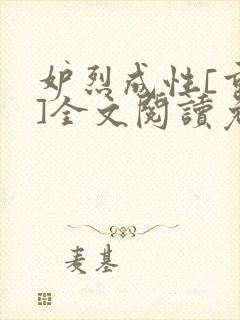 妒烈成性[重
]全文閱讀免
麦基